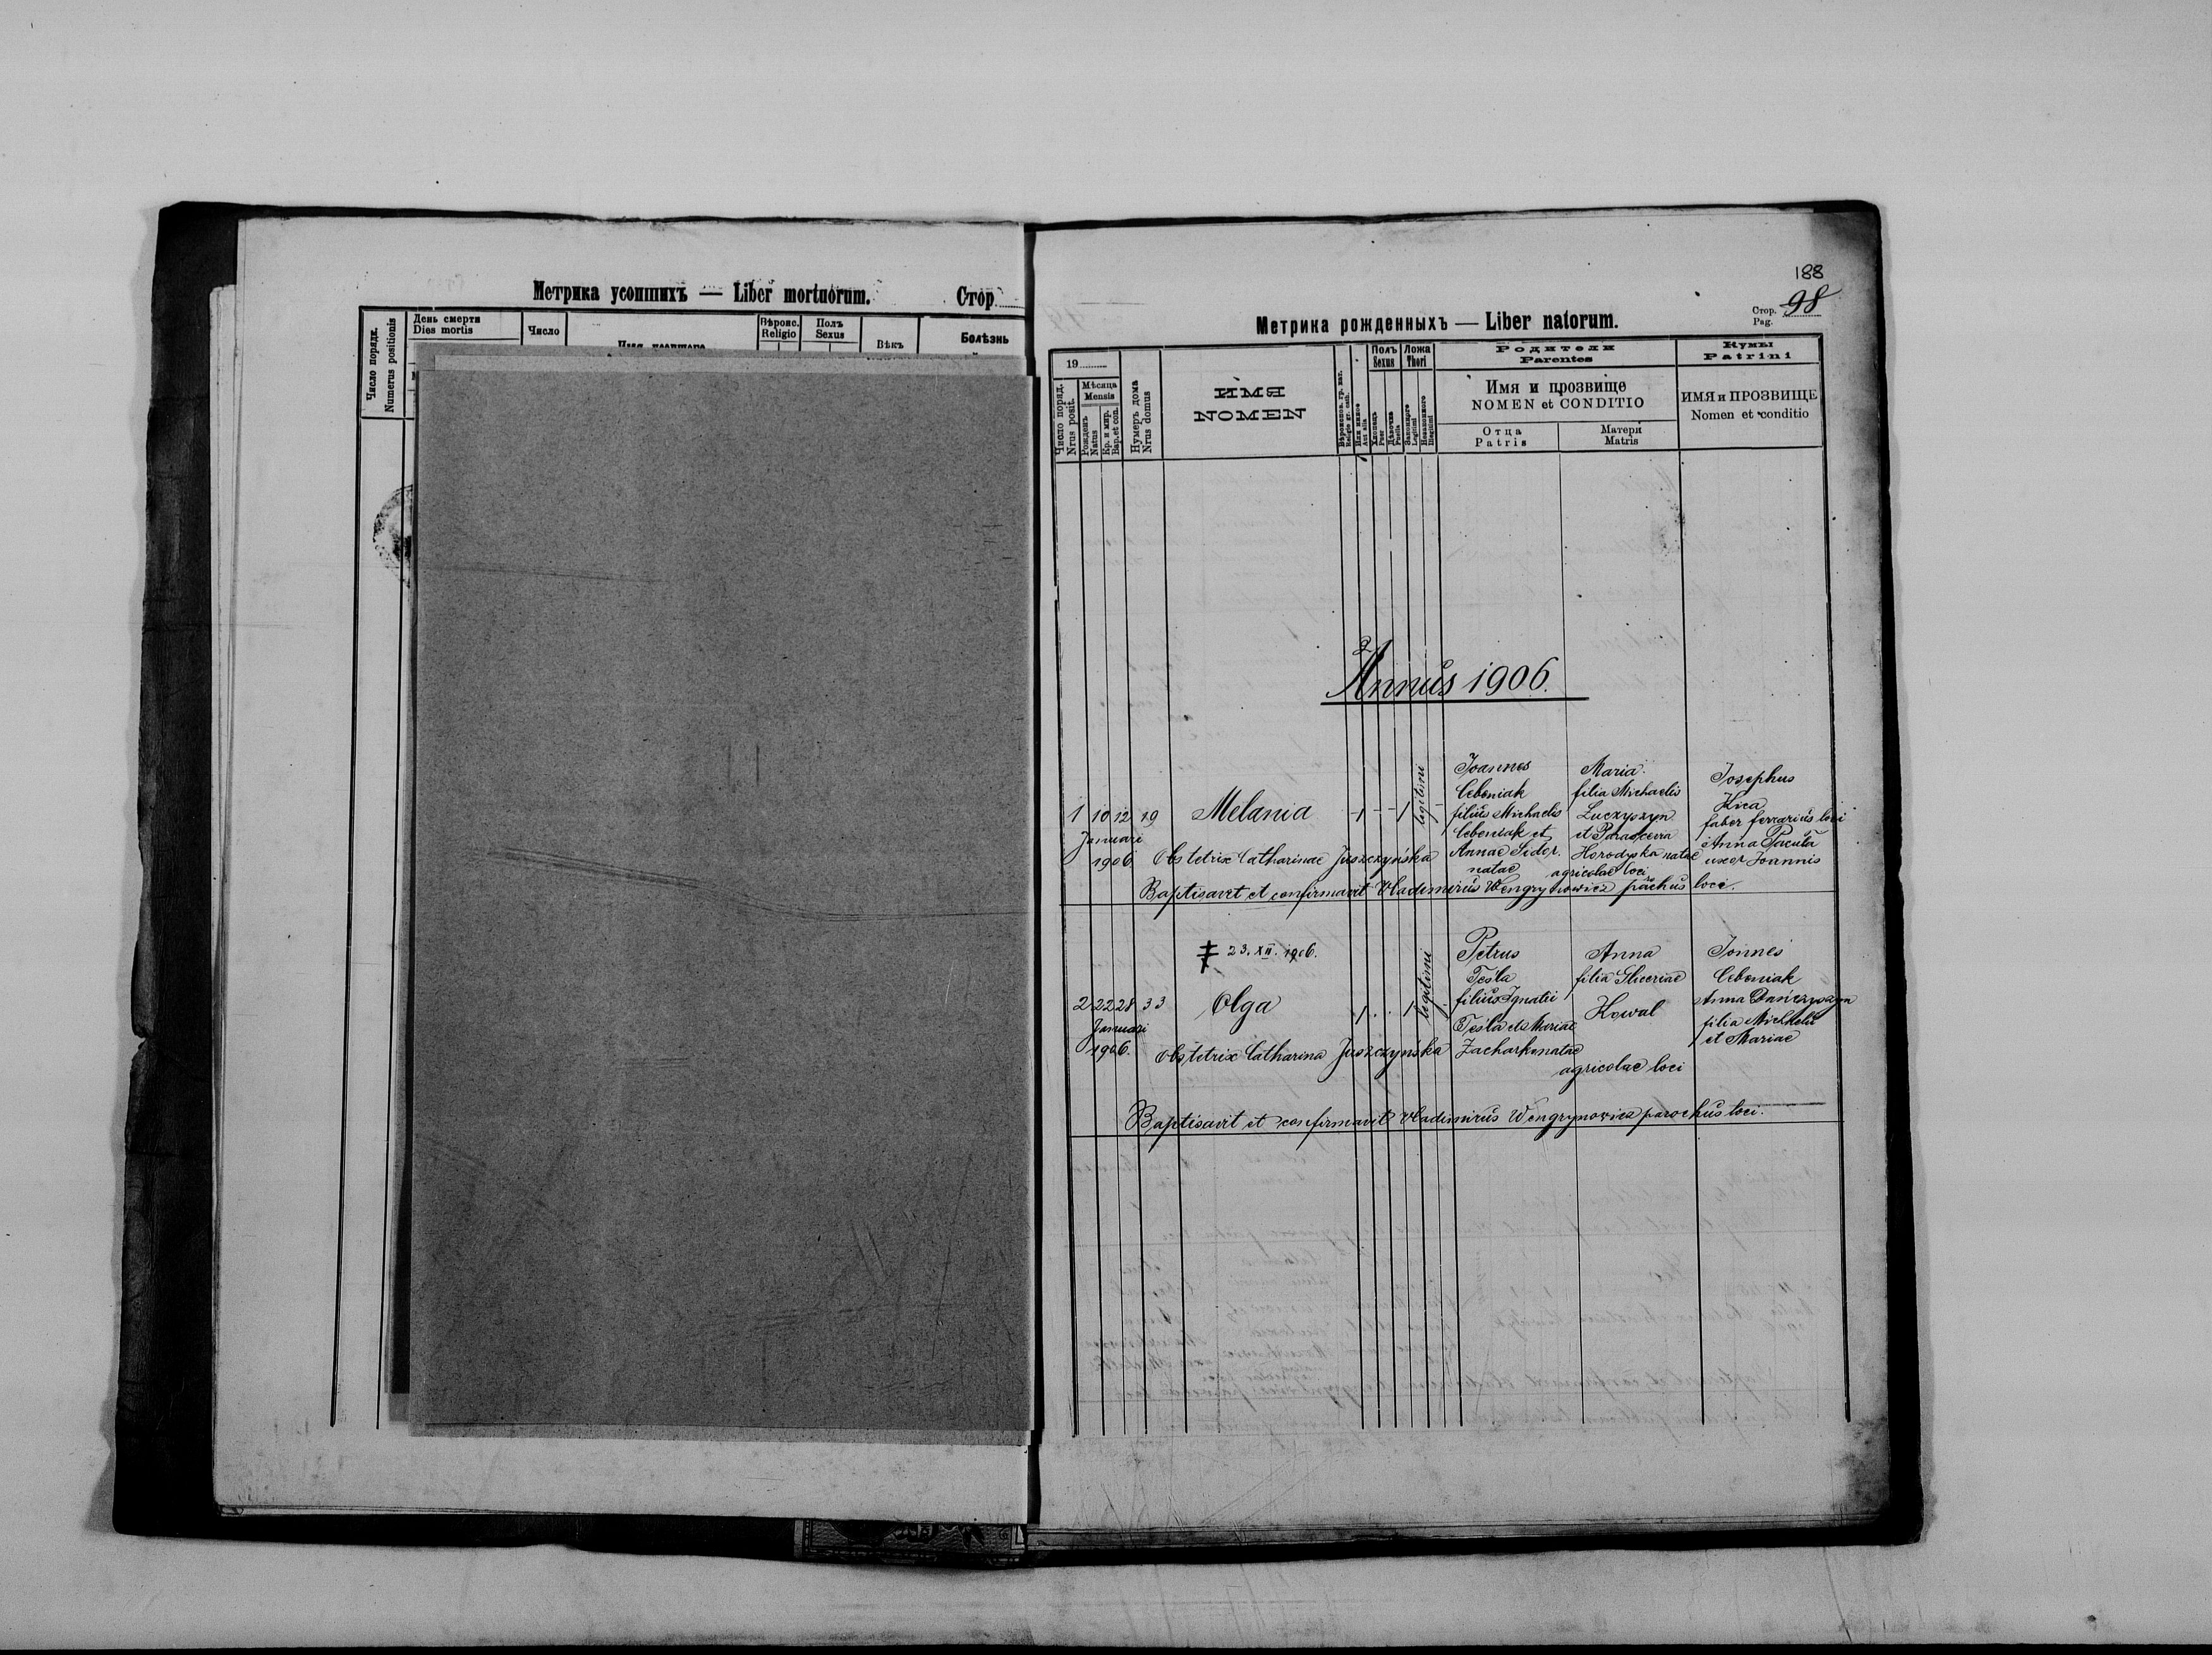 Метрика усопшихъ — Liber mortuorum.
Стор.
Число порядк.
Numerus positionis
День смерти
Dies mortis
Число
Имя усопшаго
Вѣроис.
Religio
Полъ
Sexus
Вѣкъ
Болѣзнь
188
Метрика рожденныхъ — Liber natorum.
Стор.
Pag.
98
19
Число поряд.
Nrus posit.
Мѣсяца
Mensis
Рожденъ
Natus
Кр. и мѵр.
Bap. et con.
Нумеръ дома
Nrus domus
ИМЯ
NOMEN
Вѣроиспов. гр. кат.
Religio gr. cath.
Или инное
Aut alia
Полъ
Sexus
Хлопець
Puer
Дѣвочка
Puella
Ложа
Thori
Законнаго
Legitimi
Незаконного
Illegitimi
Родители
Parentes
Имя и прозвище
NOMEN et CONDITIO
Отца
Patris
Матери
Matris
Кумы
Patrini
ИМЯ и ПРОЗВИЩЕ
Nomen et conditio
Annus 1906.
1 10 12 19 Melania 1 - - 1 legitimi
Januari
1906
Joannes
Ceboniak
filius Michaelis
Ceboniak et
Annae Sidor.
natae
Maria
filia Michaelis
Luczyszyn
et Parascevia
Horodyska natae
agricolae loci
Josephus
Kica
faber ferrarius loci
Anna Pacuła
uxor Joannis
Obstetrix Catharinae Juszczyńska
Baptisavit et confirmavit Vladimirus Wengrynowicz parochus loci.
23. XII. 1906.
2 22 28 33 Olga 1 . . 1 legitimi
Januari
1906.
Petrus
Tesla
filius Ignatii
Tesla et Mariae
Zacharko natae
Anna
filia Gliceriae
Kowal
agricolae loci
Ionnes
Ceboniak
Anna Dańczyszyn
filia Michaelis
et Mariae
Obstetrix Catharina Juszczyńska
Baptisavit et confirmavit Vladimirus Wengrynowicz parochus loci.